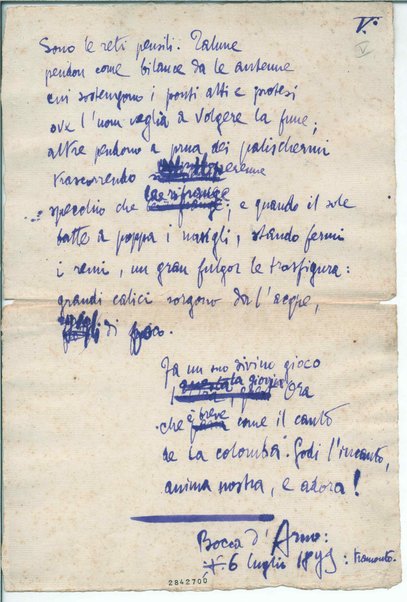 V.
V
Sono le reti pensili. Talune
pendon come bilance da le antenne
cui sostengono i ponti alti e protesi
ove l'uom veglia a volgere la fune;
altre pendono a prua dei palischermi
trascorrendo perenne
specchio che le rifrange; e quando il sole
batte a poppa i navigli, stando fermi
i remi, un gran fulgor le trasfigura:
grandi calici sorgono da l'acque,
gigli di foco.
Fa un suo divino gioco
la giovine Ora
che è breve come il canto
de la colomba. Godi l'incanto,
anima nostra, e adora!
Bocca d'Arno:
6 luglio 1899: tramonto.
2842700